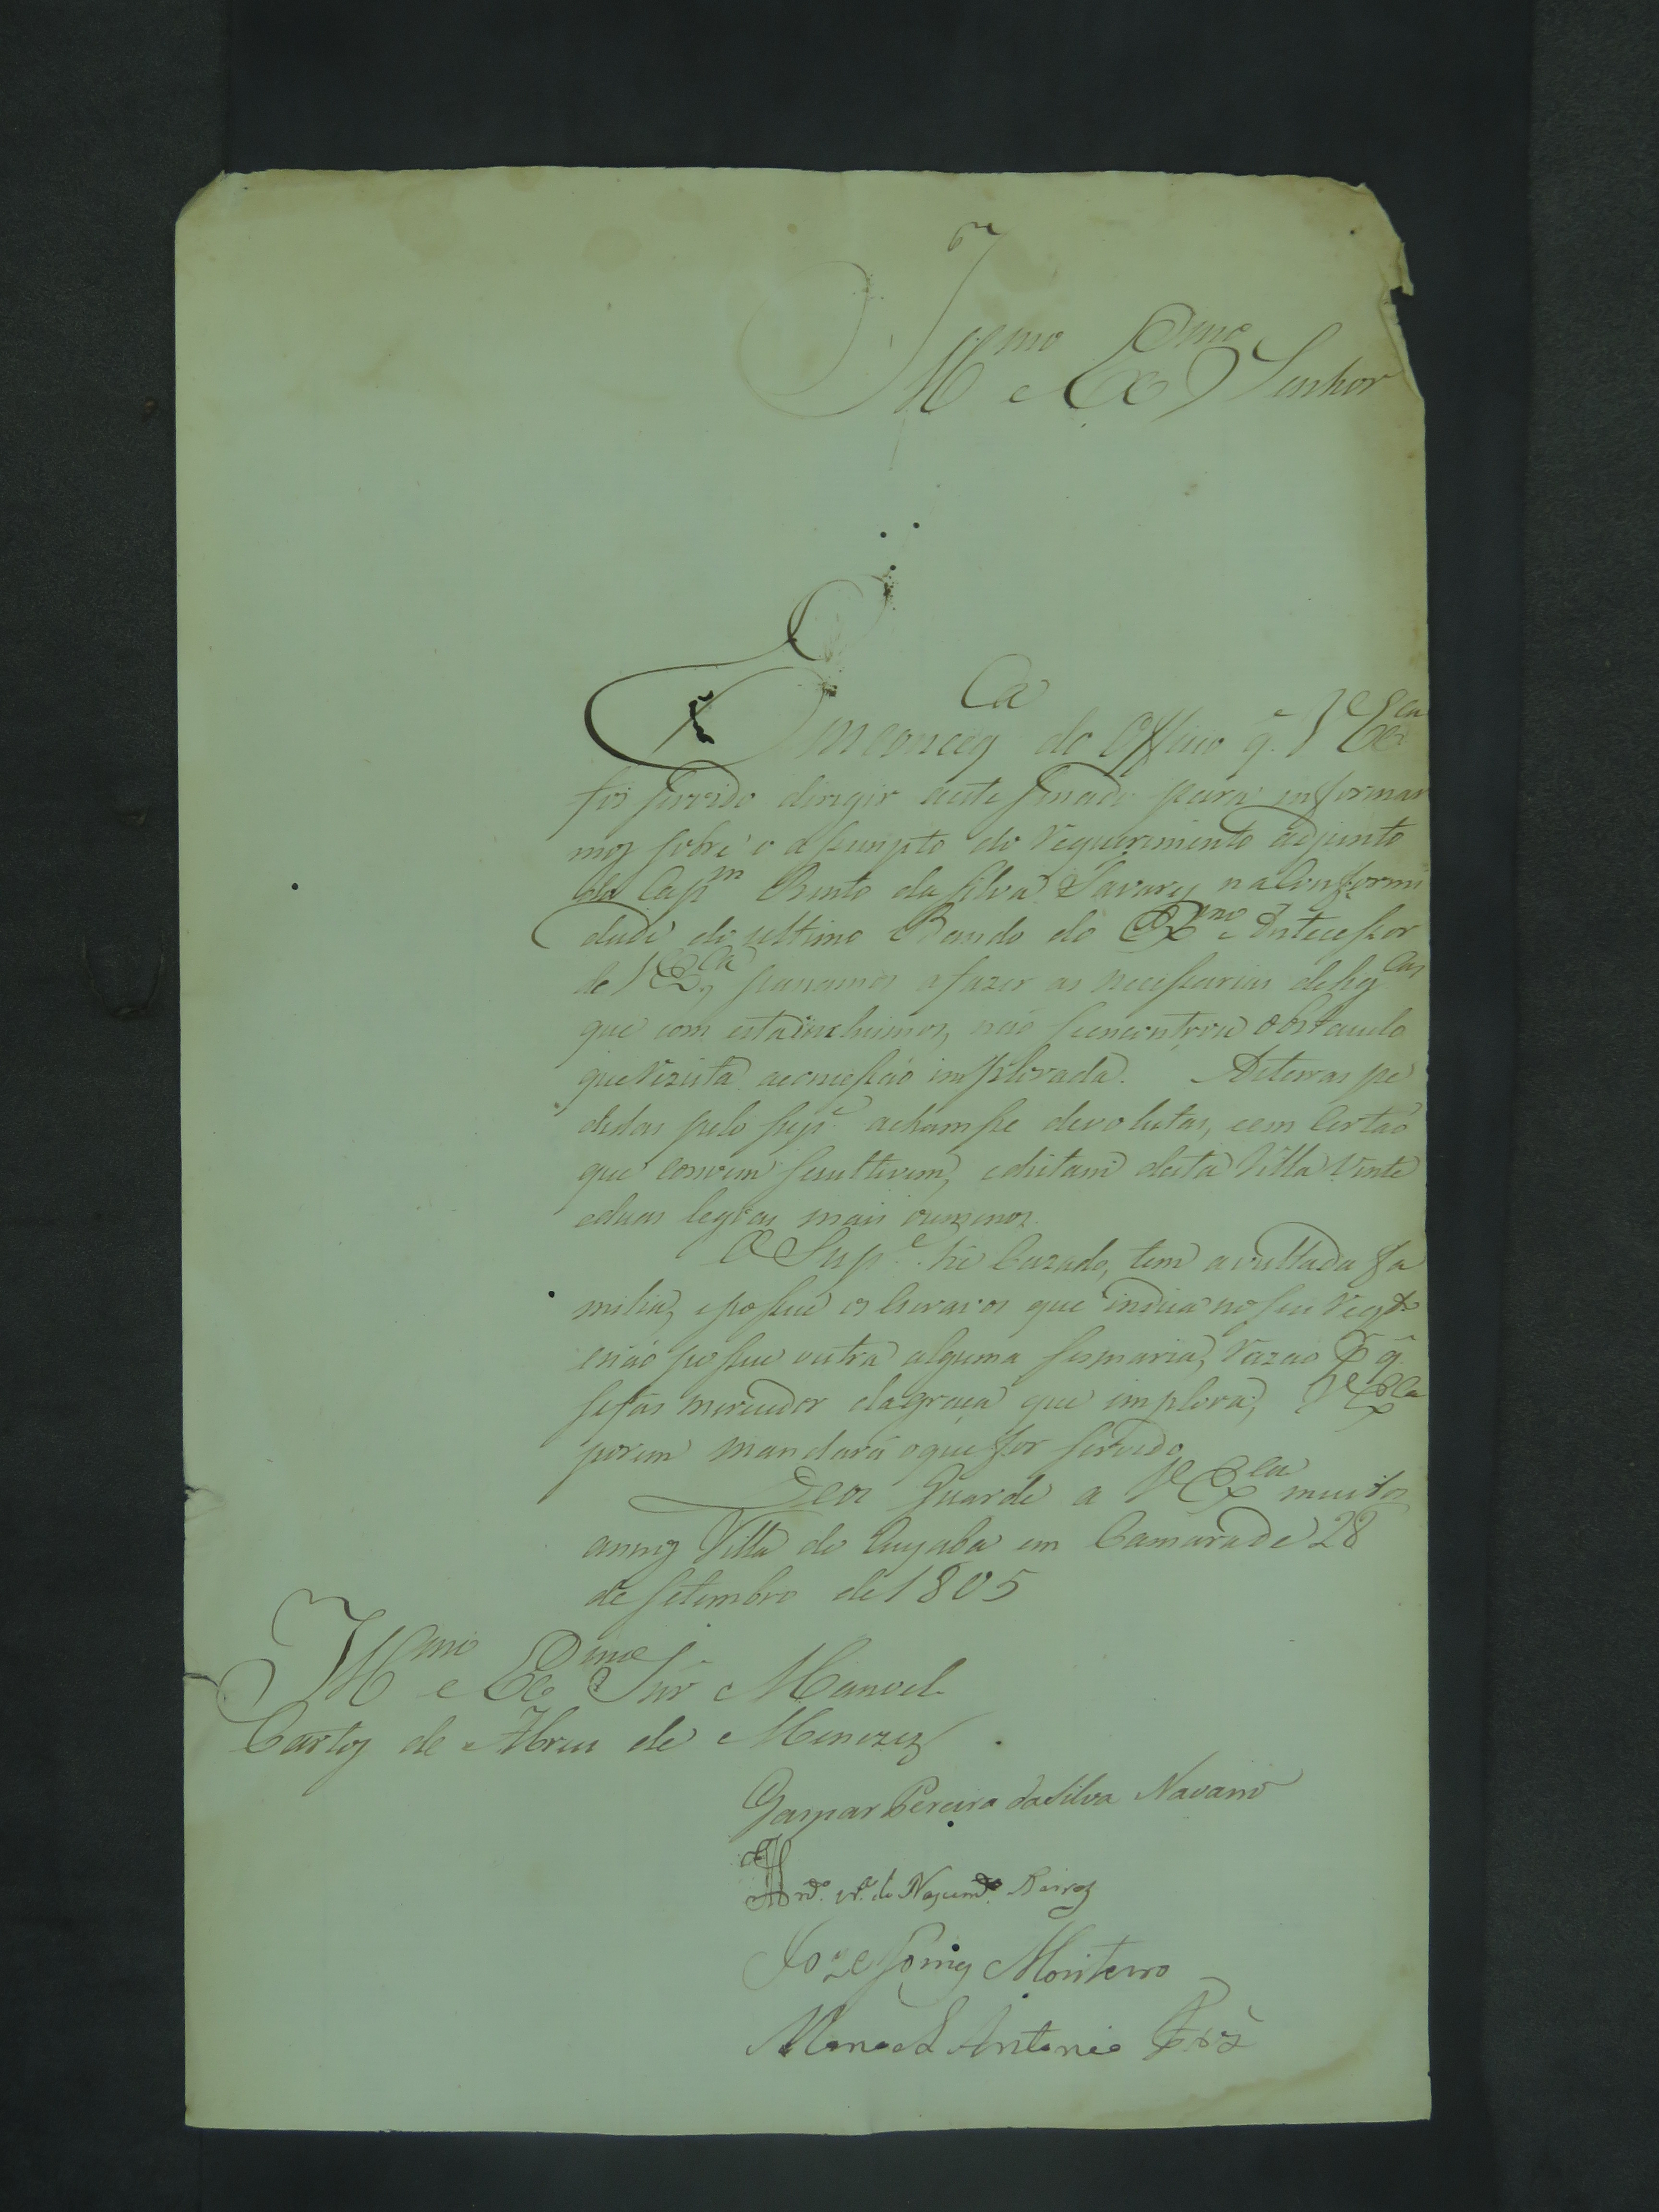 Illmo e Exmo Senhor
Em conseqca do Officio q̃ VExca
foi servido dirigir aeste Senado para informar
mos sobre o assumpto do Requerimento adjunto
do Capm Bento da Silva Tavares na Conformi
dade do ultimo Bando do Exmo Antecessor
de VExca, passamos afazer as necessarias delig cas
que com esta incluimos, não seencontrou obstaculo
que rezista aconcessão implorada. As terras pe
didas pelo supe achamse devolutas, eem Certão
que convem secultivem, edistam desta Villa Vinte
eduas legoas mais oumenos.
O Supe he Cazado, tem avultada fa
milia, epossue os Escravos que indica no seu Reqto
enão possue outra alguma sesmaria, razão P q̃
sefas merecedor dagraça que implora; VExca
porem mandará oque for servido.
Deos Guarde a VExca muitos
annos Villa do Cuyaba em Camara de 28
de Setembro de 1805
Illmo e Exmo Snr Manoel
Carlos de Abreu de Menezes
Gaspar Pereira da Silva Navarro
do Nascimto
Joze Gomes Monteiro
Manoel Antonio